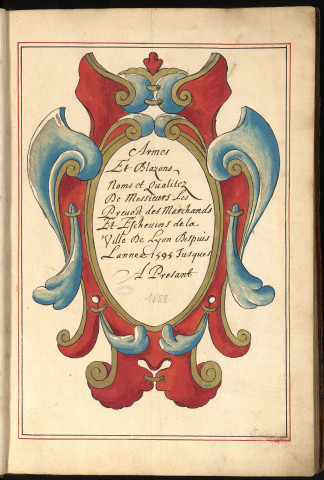 Armes
Et Blazons
Noms et Qualitez
De Messieurs Les
Preuost des Marchands
Et Escheuins de la
Ville De Lyon Despuis
Lannee 1595 Jusques
A Presant
1658